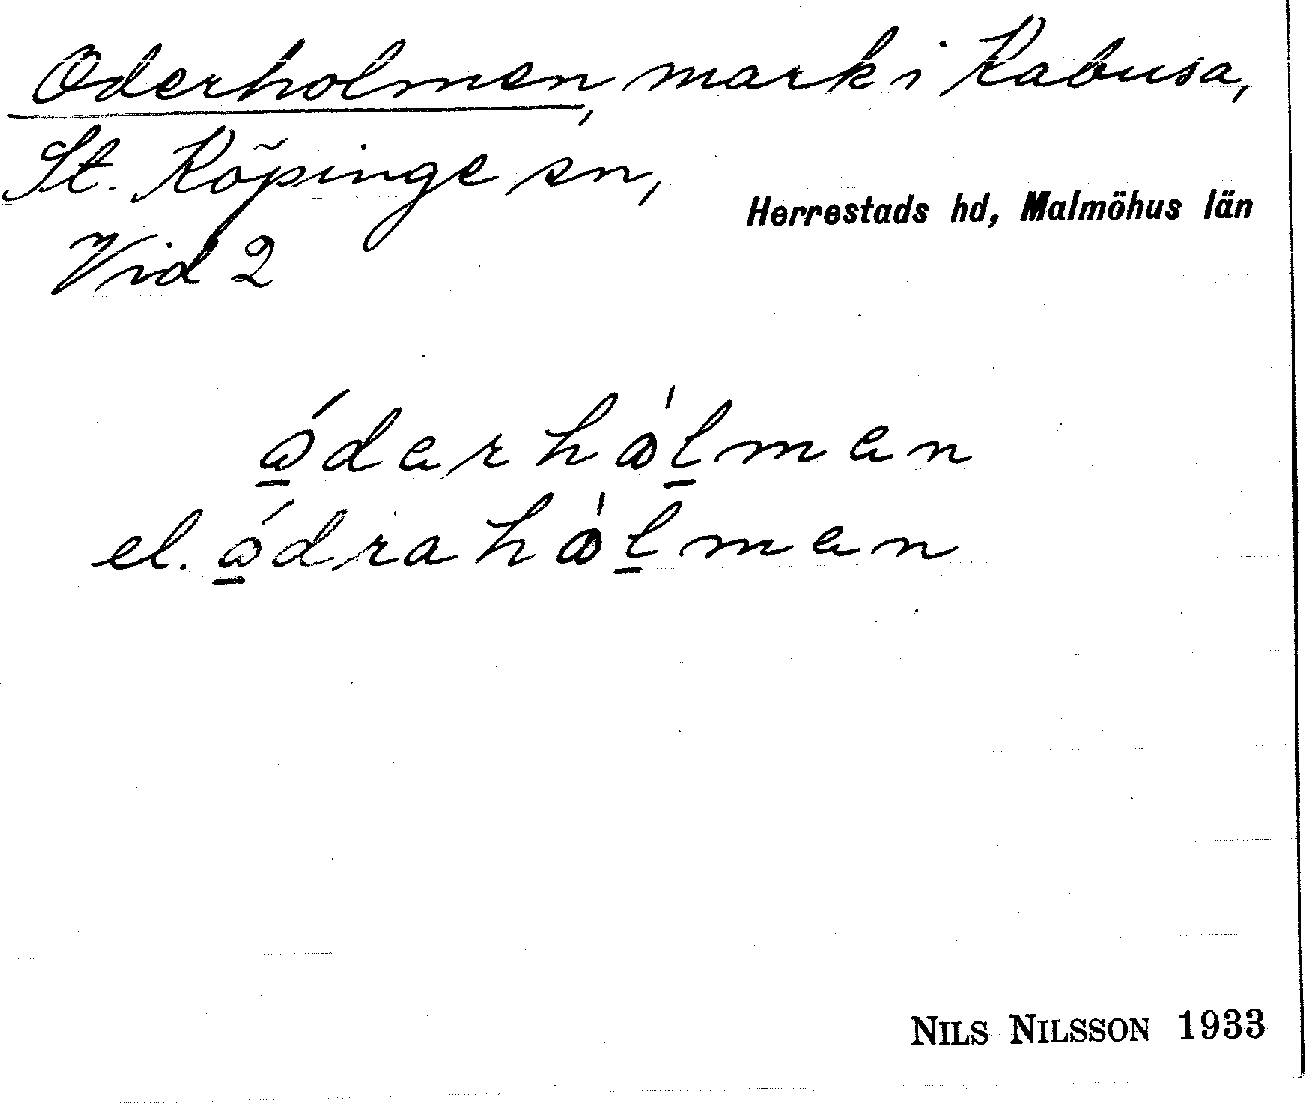 Oderholmen, mark i Kabusa,
St. Köpinge sn,
Herrestads hd, Malmöhus län
Vid 2
ó̱derhòḻmen
el. ó̱drahòḻmen
NILS NILSSON 1933